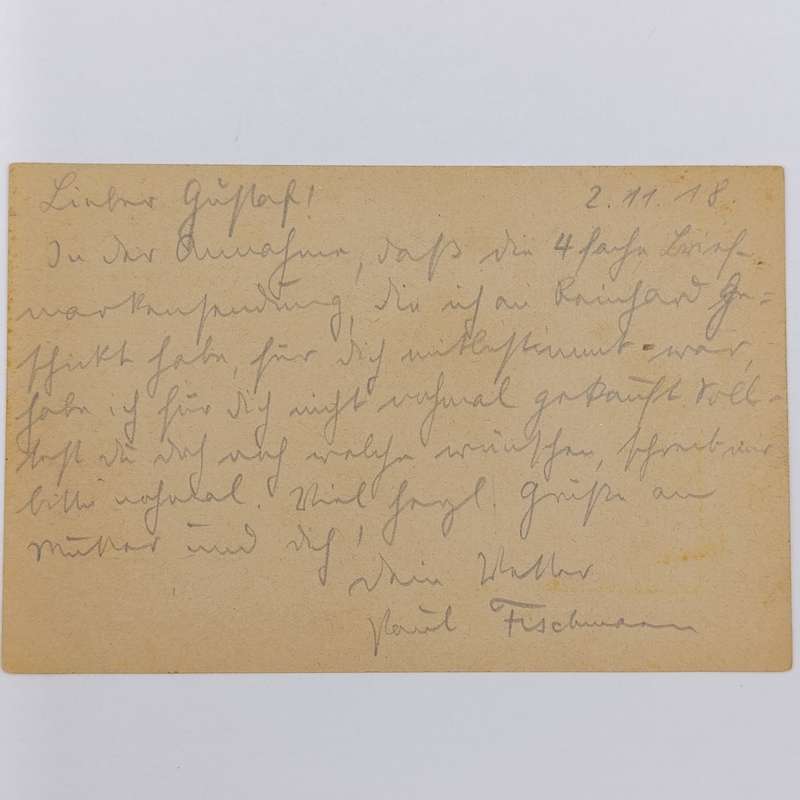 Lieber Gustaf! 2.11.18.
In der Annahme, daß die 4fache Brief-
markensendung, die ich an Reinhard Ge=
schickt habe, für dich mitbestimmt war,
habe ich für dich nicht nochmal gekauft. Soll-
test du doch noch welche wünschen, schreib mir
bitte nochmal. Viel herzl. Grüße an
Mutter und dich!
Dein Vetter
Paul Fischmann